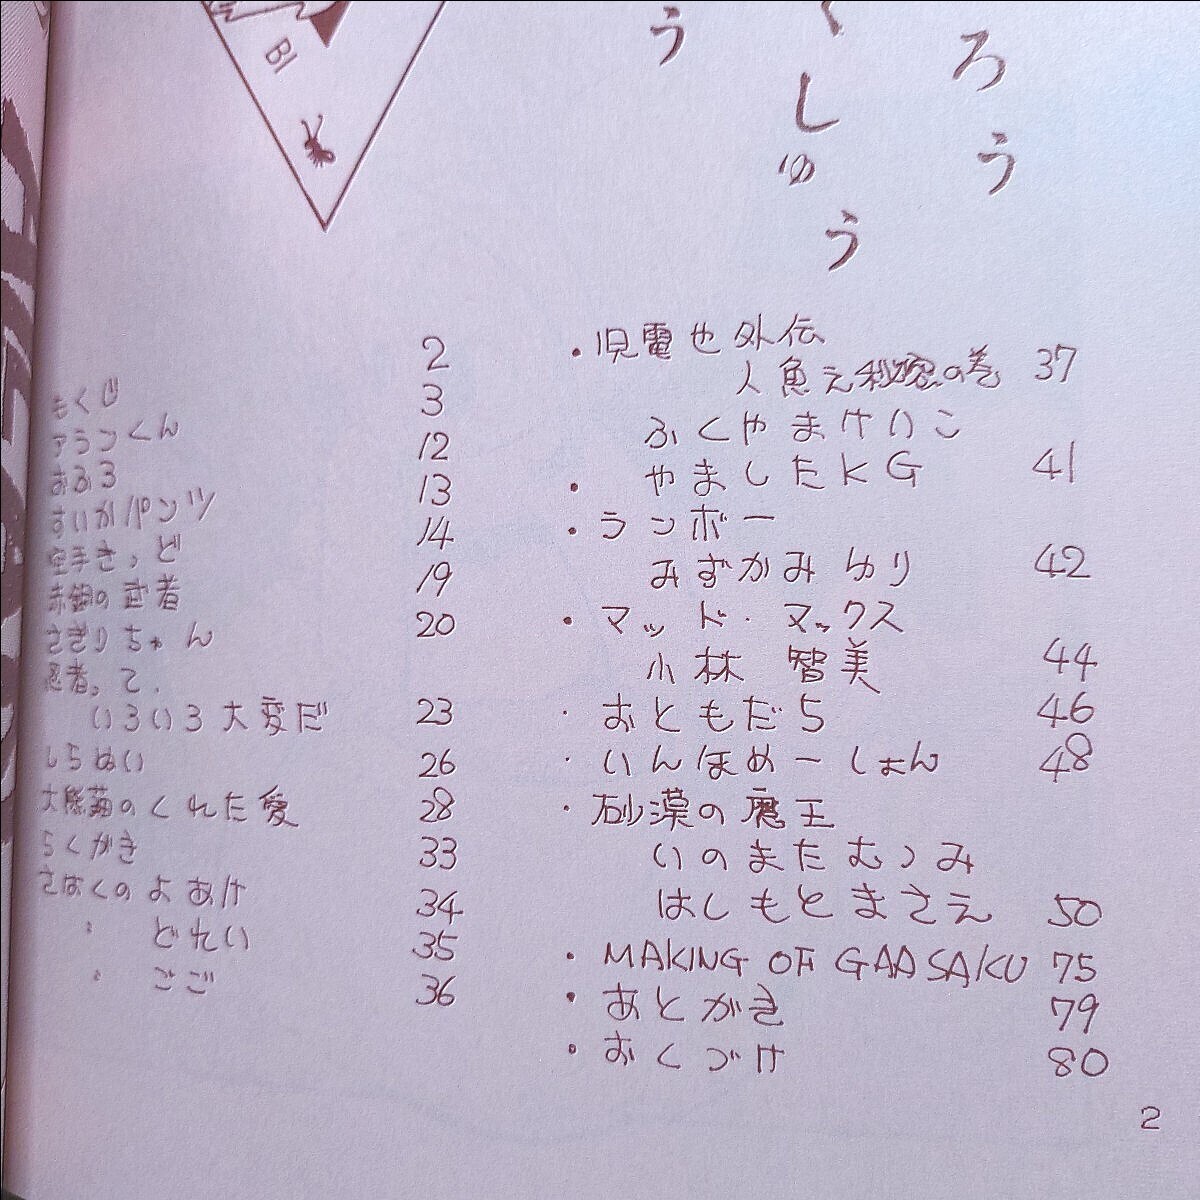 ろう
くしゅう
う
BI
もくじ 2
アランくん 3
おふろ 12
すいかパンツ 13
空手きっど 14
赤銅の武者 19
さぎりちゃん 20
忍者って、
いろいろ大変だ 23
しらぬい 26
大熊猫のくれた愛 28
らくがき 33
さばくのよあけ 34
〃 どれい 35
〃 ごご 36
・児雷也外伝
人魚え秘密の巻 37
ふくやまけいこ
・やましたKG 41
・ランボー
みずかみゆり 42
・マッド・マックス
小林 智美 44
・おともだち 46
・いんほめーしょん 48
・砂漠の魔王
いのまたむつみ
はしもとまさえ 50
・MAKING OF GAASAKU 75
・あとがき 79
・おくづけ 80
2